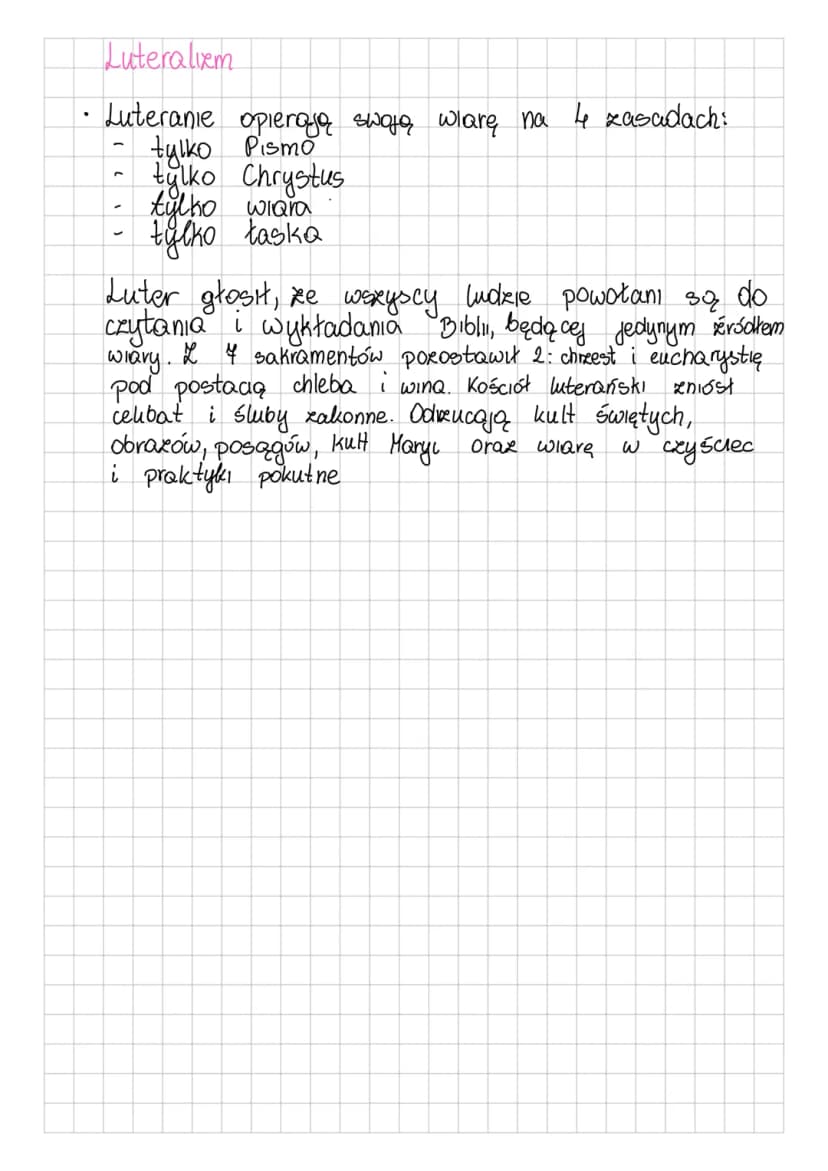 Luteralizm
• Luteranie opierają swoją wiarę na 4 zasadach:
- tylko Pismo
- tylko Chrystus
- tylko wiara
- tylko łaska
Luter głosił, że wszyscy ludzie powołani są do
czytania i wykładania Biblii, będącej jedynym źródłem
wiary. Z 7 sakramentów pozostawił 2: chrzest i eucharystię
pod postacią chleba i wina. Kościół luterański zniósł
celibat i śluby zakonne. Odrzucają kult świętych,
obrazów, posągów, kult Maryi oraz wiarę w czyściec
i praktyki pokutne